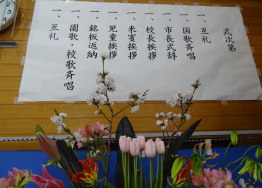 式次第
一、互礼
一、国歌斉唱
一、市長式辞
一、校長挨拶
一、来賓挨拶
一、児童挨拶
一、銘板返納
一、園歌・校歌斉唱
一、互礼